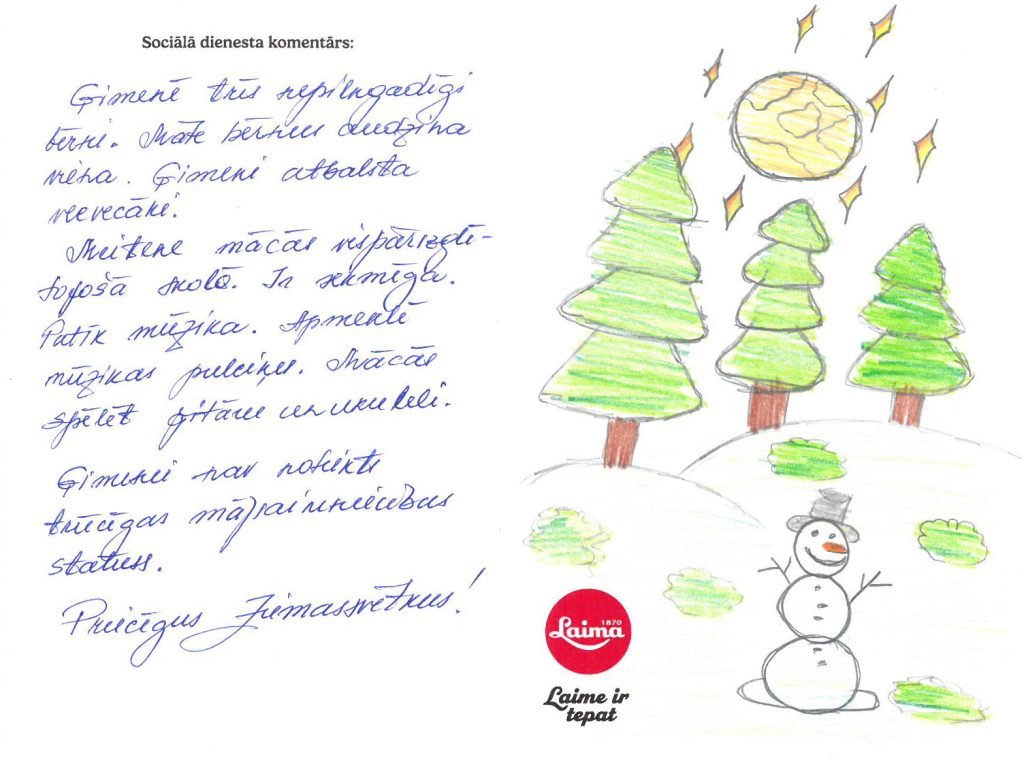 Sociālā dienesta komentārs:
Ģimenē trīs nepilngadīgi
bērni. Māte bērnus audzina
viena. Ģimeni atbalsta
vecvecāki.
Meitene mācās vispārizglī-
tojošā skolā. Ir sekmīga.
Patīk mūzika. Apmeklē
mūzikas pulciņu. Mācās
spēlēt ģitāru un ukuleli.
Ģimenei nav noteikts
trūcīgas mājsaimniecības
statuss.
Priecīgus Ziemassvētkus!
1870
Laima
Laime ir
tepat